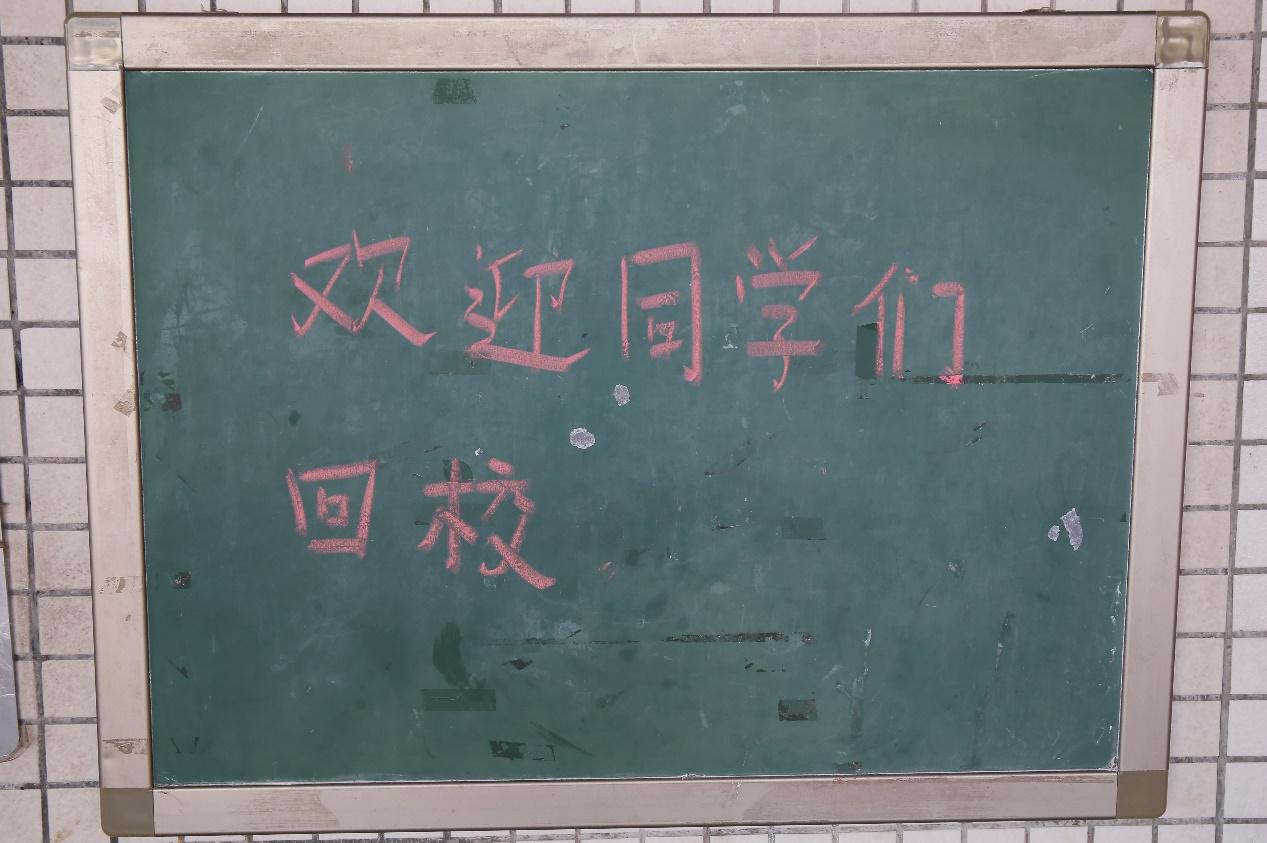 欢迎同学们
回校